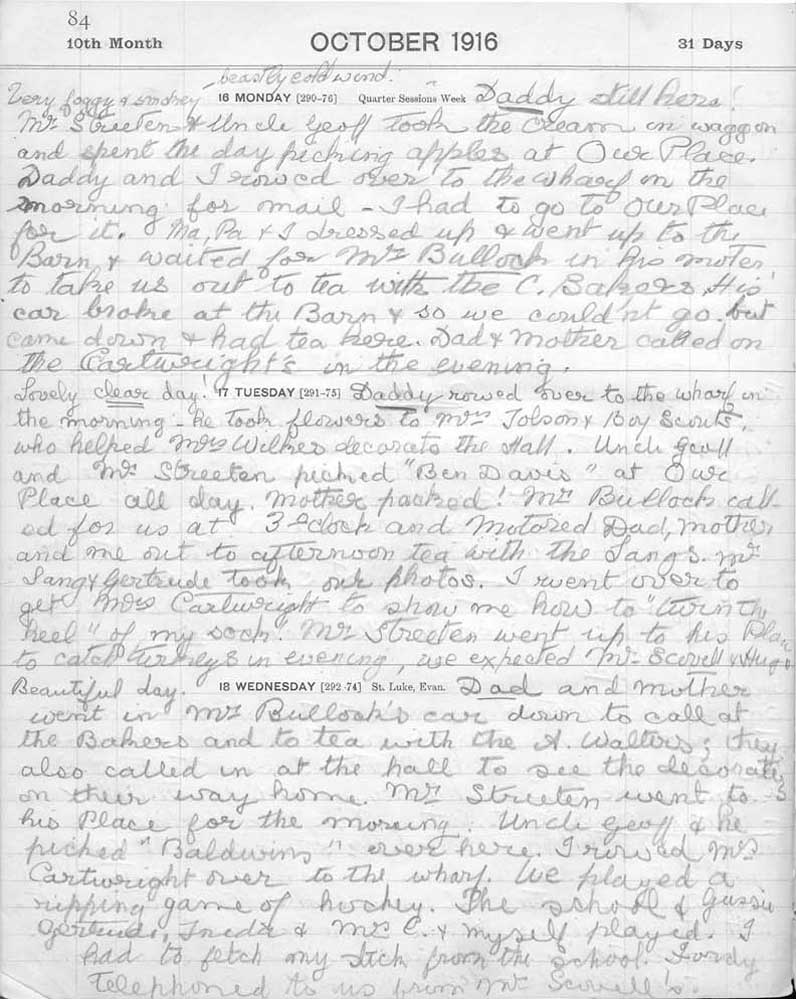 84
10th Month OCTOBER 1916 31 Days
beastly cold wind.
Very foggy & smokey 16 MONDAY [290-76] Quarter Sessions Week Daddy still here!
Mr Streeten & Uncle Geoff took the cream in waggon
and spent the day picking apples at Our Place.
Daddy and I rowed over to the wharf in the
morning for mail - I had to go to Our Place
for it. Ma, Pa & I dressed up & went up to the
Barn & waited for Mr Bullock in his moter
to take us out to tea with the C. Bakers. His
car broke at the Barn & so we could'nt go but
came down & had tea here. Dad & Mother called on
the Cartwright's in the evening.
Lovely clear day! 17 TUESDAY [291-75] Daddy rowed over to the wharf in
the morning - he took flowers to Mrs Tolson & Boy Scouts,
who helped Mrs Wilkes decorate the Hall. Uncle Geoff
and Mr Streeten picked "Ben Davis" at Our
Place all day. Mother packed! Mr Bullock call-
ed for us at 3 o'clock and motored Dad, Mother
and me out to afternoon tea with the Langs. Mr
Lang & Gertrude took our photos. I went over to
get Mrs Cartwright to show me how to "turn the
heel" of my sock. Mr Streeten went up to his Place
to catch turkeys in evening, we expected Mr Scovell & Hugo
Beautiful day. 18 WEDNESDAY [292-74] St. Luke, Evan. Dad and Mother
went in Mr Bullock's car down to call at
the Bakers and to tea with the A. Walters; they
also called in at the hall to see the decorations
on their way home. Mr Streeten went to
his Place for the morning. Uncle Geoff & he
picked "Baldwins" over here. I rowed Mrs
Cartwright over to the wharf. We played a
ripping game of hockey. The school & Gussie
Gertrude, Freda & Mrs C. & myself played. I
had to fetch my stick from the school. Fordy
telephoned to us from Mr Scovell's.